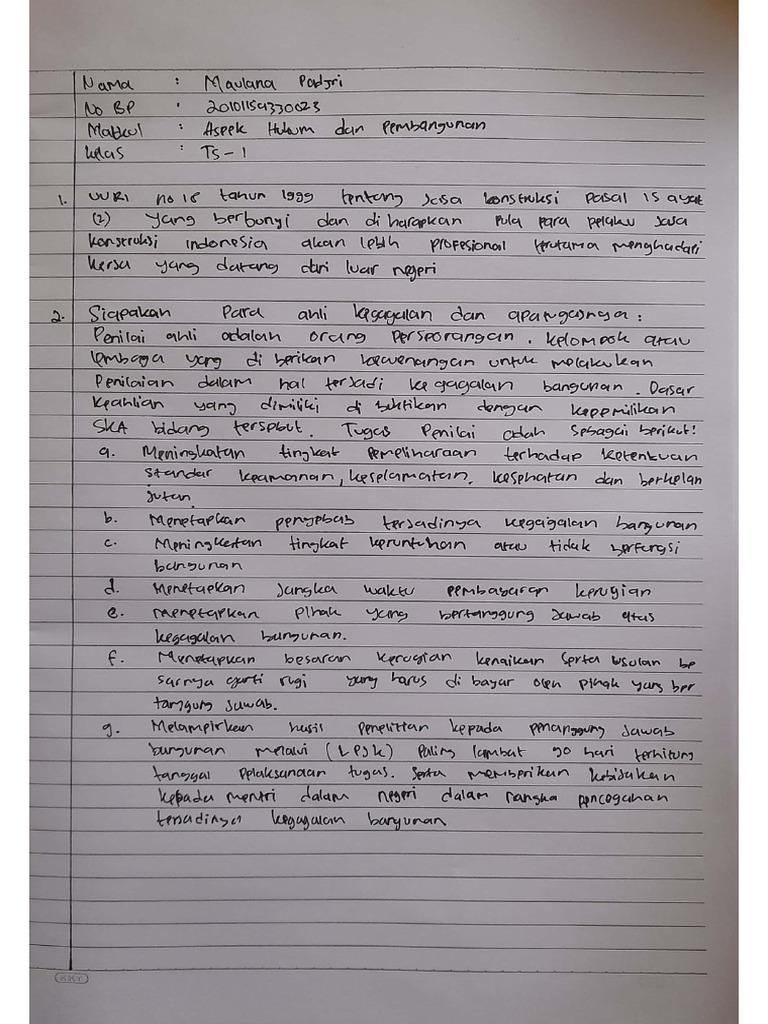 Nama : Maulana Padjri
No BP : 20101154330023
Matkul : Aspek Hukum dan pembangunan
Kelas : TS-1
1. UURI no 18 tahun 1999 tentang Jasa konstruksi pasal 15 ayat
(2) yang berbunyi dan di harapkan pula para pelaku jasa
konstruksi indonesia akan lebih profesional terutama menghadapi
kersa yang datang dari luar negeri
2. Siapakan para ahli kegagalan dan apatugasnya :
Penilai ahli adalah orang perseorangan, kelompok atau
lembaga yang di berikan kewenangan untuk melakukan
Penilaian dalam hal terjadi kegagalan bangunan. Dasar
keahlian yang dimiliki di buktikan dengan kepemilikan
SKA bidang tersebut. Tugas Penilai adah sebagai berikut!
a. Meningkatan tingkat pemeliharaan terhadap ketenkuan
standar keamanan, keselamatan, kesehatan dan berkelan
jutan.
b. Menetapkan penyebab terjadinya kegagalan bangunan
c. Meningkatan tingkat keruntuhan atau tidak berfungsi
bangunan
d. Menetapkan jangka waktu pembayaran kerugian
e. menetapkan pihak yang bertanggung jawab atas
kegagalan bangunan.
f. Menetapkan besaran kerugian kenaikan serta usulan be
sarnya ganti rugi yang harus di bayar oleh pihak yang ber
tanggung jawab.
g. Melampirkan hasil penelitian kepada penanggung jawab
bangunan melalui (LPJK) paling lambat 90 hari terhitung
tanggal pelaksanaan tugas. serta memberikan kebijakan
kepada mentri dalam negeri dalam rangka pencegahan
terjadinya kegagalan bangunan.
KKY